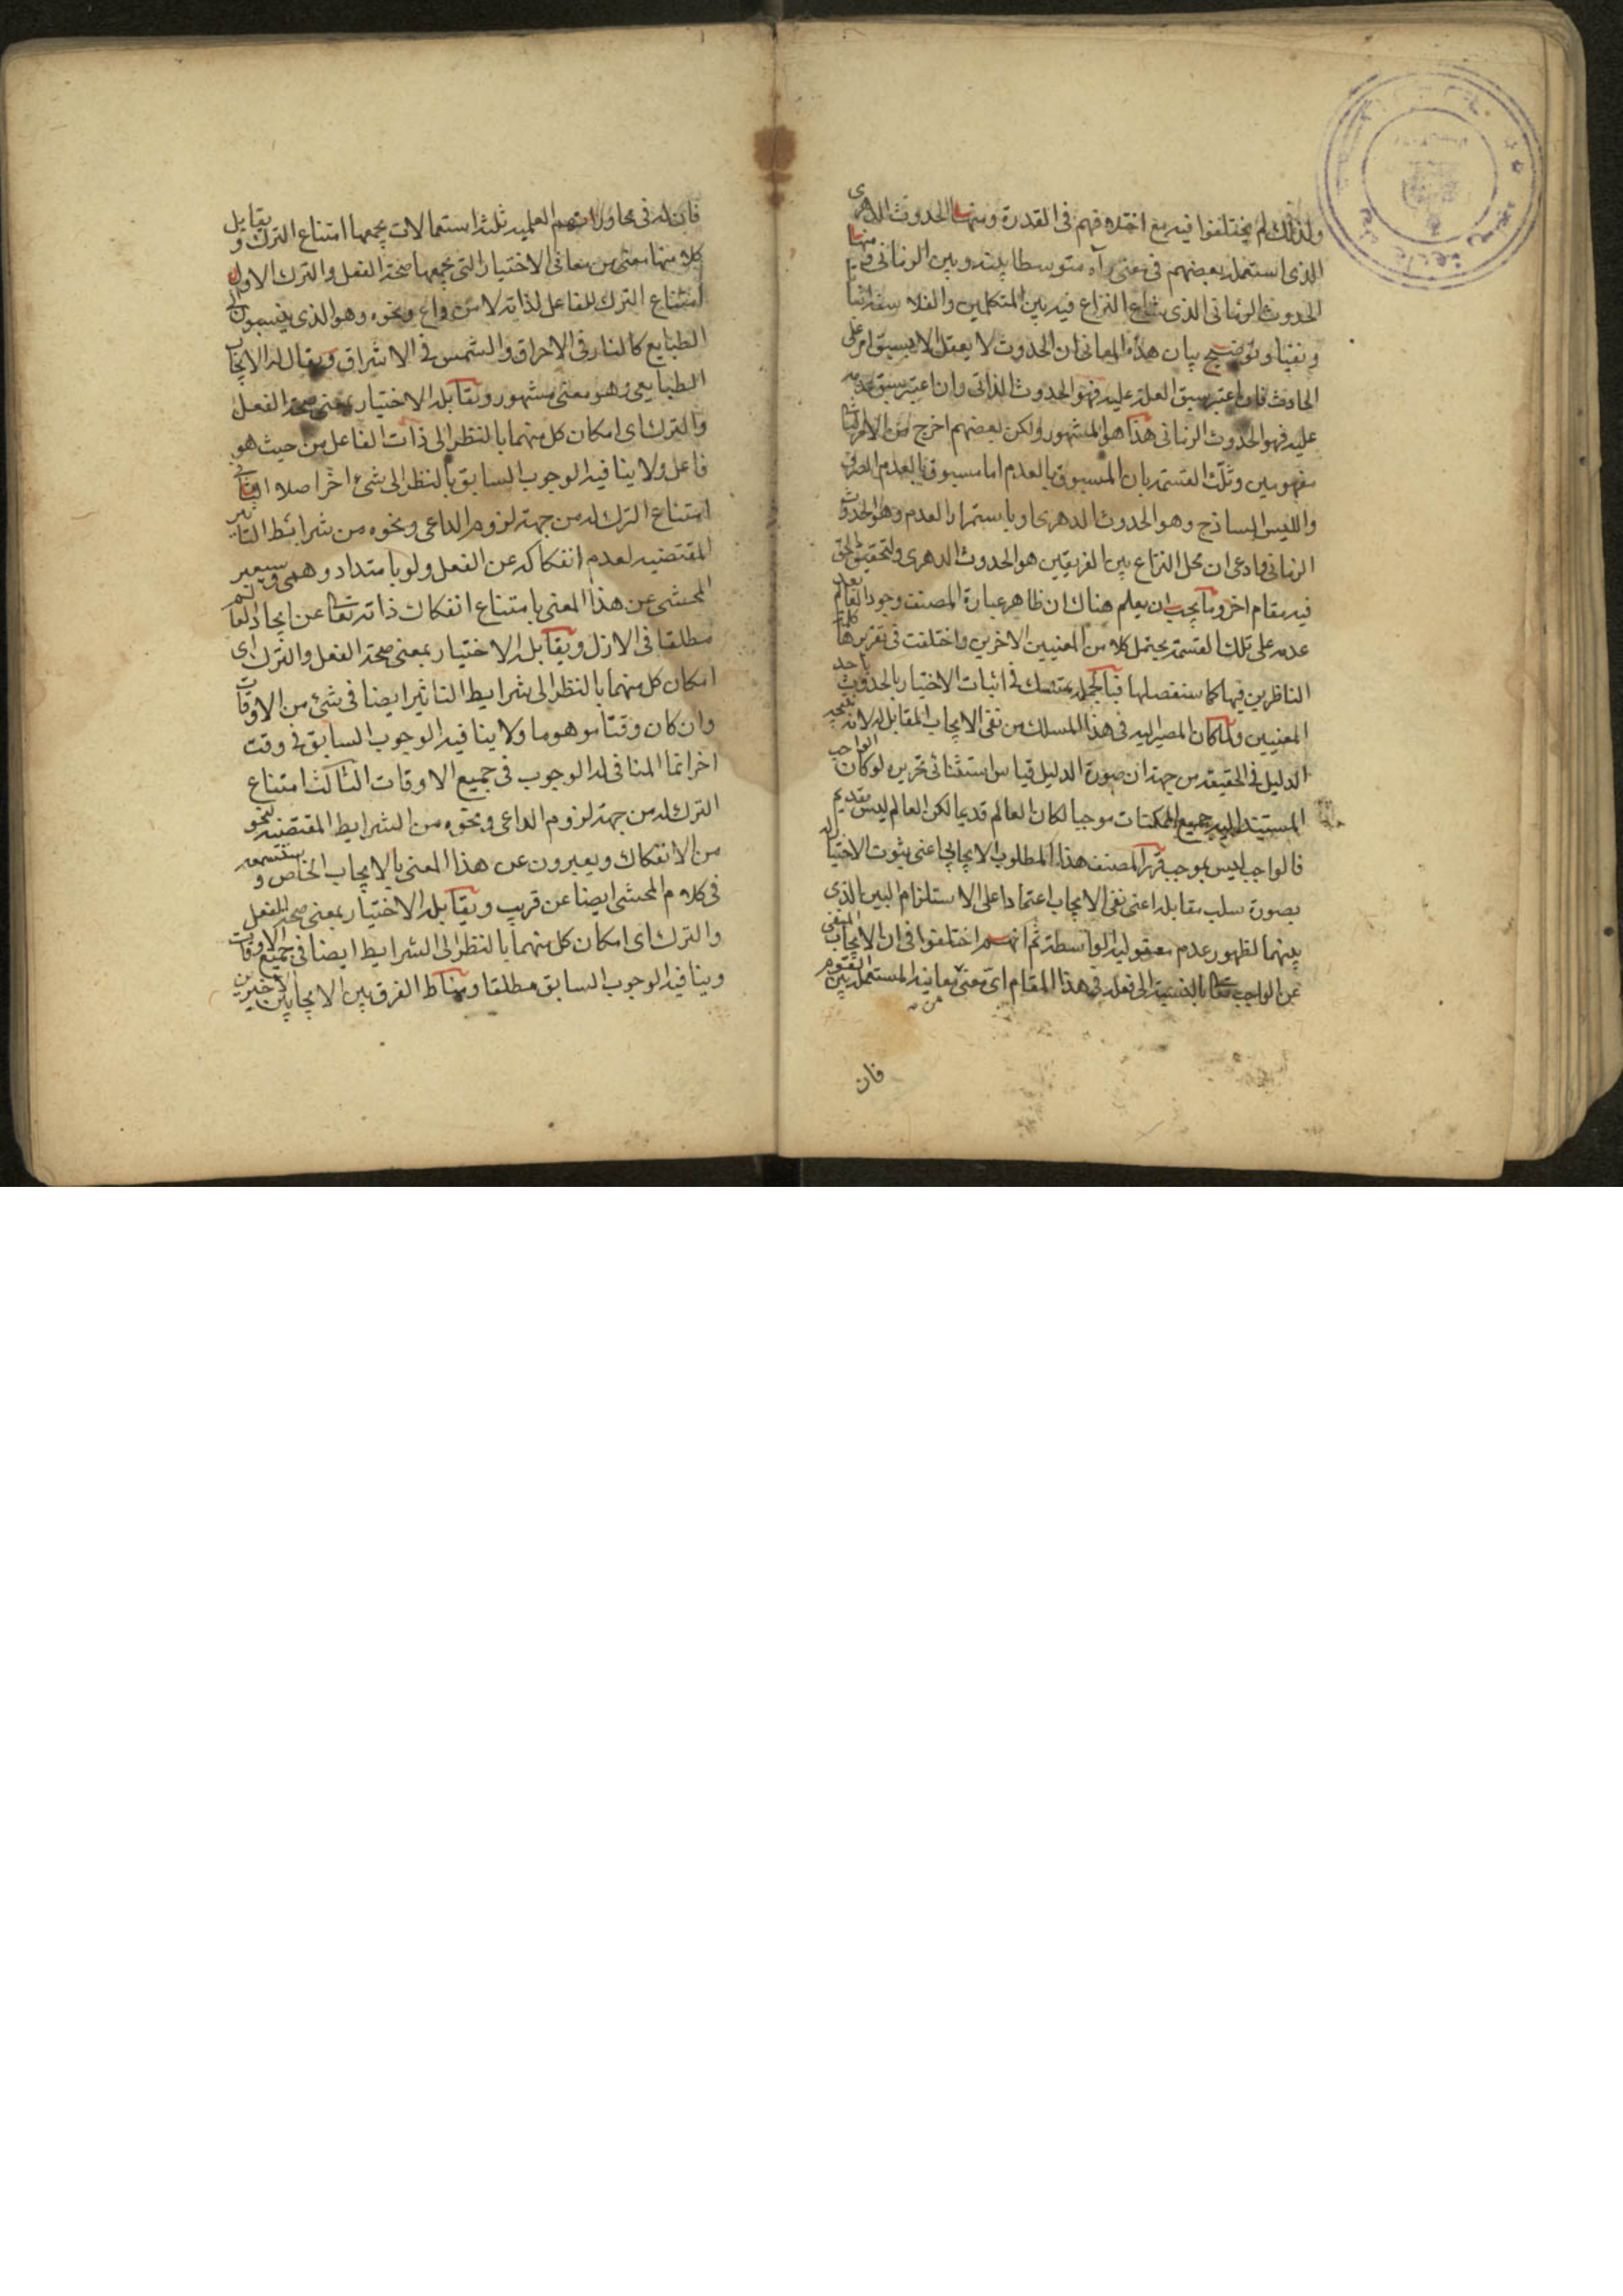 ولذلك لم يختلفوا فيه مع اختلافهم في القدرة ومنها الحدوث الدهرى
الذى استعمله بعضهم في معنى رآه متوسطا بينه وبين الزمانى ومنها
الحدوث الزمانى الذى شاع النزاع فيه بين المتكلمين والفلاسفة اثباتا
ونفيا وتوضيح بيان هذه المعانى ان الحدوث لا يعقل الا بسبق امر على
الحادث فان اعتبر سبق العلة عليه فهو الحدوث الذاتى وان اعتبر سبق عدمه
عليه فهو الحدوث الزمانى هذا هو المشهور ولكن بعضهم اخرج من الامر الثانى
مفهومين وثلث القسمة بان المسبوق بالعدم اما مسبوق بالعدم الصرف
والليس الساذج وهو الحدوث الدهرى او باستمرار العدم وهو الحدوث
الزمانى وادعى ان محل النزاع بين الفريقين هو الحدوث الدهرى ولتحقيق الحق
فيه مقام اخر ومما يجب ان يعلم هناك ان ظاهر عبارة المصنف وجود العالم بعد
عدمه على تلك القسمة يحتمل كلا من المعنيين الاخرين واختلفت في تقريرها كلمة
الناظرين فيها كما سنفصلها فبالجملة يتمسك في اثبات الاختيار بالحدوث باحد
المعنيين ولما كان المصير اليه في هذا المسلك من نفى الايجاب المقابل له لانه نتيجة
الدليل في الحقيقة من جهة ان صورة الدليل قياس استثنائى تحريره لو كان الواجب
المستند اليه جميع الممكنات موجبا لكان العالم قديما لكن العالم ليس بقديم
فالواجب ليس بموجب قرر المصنف هذا المطلوب الايجابى اعنى ثبوت الاختيار له
بصورة سلب مقابله اعنى نفى الايجاب اعتمادا على الاستلزام البين الذى
بينهما لظهور عدم معقولية الواسطة ثم انهم اختلفوا في ان الايجاب المنفى
عن الواجب تعالى بالنسبة الى فعله في هذا المقام اى معنى من معانيه المستعملة بين القوم
فان
فان له في محاوراتهم العلمية ثلثة استعمالات يجمعها امتناع الترك ويقابل
كلا منها معنى من معانى الاختيار التى يجمعها صحة الفعل والترك الاول
امتناع الترك للفاعل لذاته لا من داع ونحوه وهو الذى ينسبون الى
الطبايع كالنار في الاحراق والشمس في الاشراق ويقال له الايجاب
الطبايعى وهو معنى مشهور ويقابله الاختيار بمعنى صحة الفعل
والترك اى امكان كل منهما بالنظر الى ذات الفاعل من حيث هو
فاعل ولا ينافيه الوجوب السابق بالنظر الى شئ اخر اصلا الثانى
امتناع الترك له من جهة لزوم الداعى ونحوه من شرائط التاثير
المقتضية لعدم انفكاكه عن الفعل ولو بامتداد وهمى وسيعبر
المحشى عن هذا المعنى بامتناع انفكاك ذاته تعالى عن ايجاد العالم
مطلقا في الازل ويقابله الاختيار بمعنى صحة الفعل والترك اى
امكان كل منهما بالنظر الى شرايط التاثير ايضا في شئ من الاوقات
وان كان وقتا موهوما ولا ينافيه الوجوب السابق في وقت
اخر انما المنافى له الوجوب في جميع الاوقات الثالث امتناع
الترك له من جهة لزوم الداعى ونحوه من الشرايط المقتضية لنحو
من الانفكاك ويعبرون عن هذا المعنى بالايجاب الخاص وستسمعه
في كلام المحشى ايضا عن قريب ويقابله الاختيار بمعنى صحة الفعل
والترك اى امكان كل منهما بالنظر الى الشرايط ايضا في جميع الاوقات
وينافيه الوجوب السابق مطلقا ومناط الفرق بين الايجابين الاخيرين